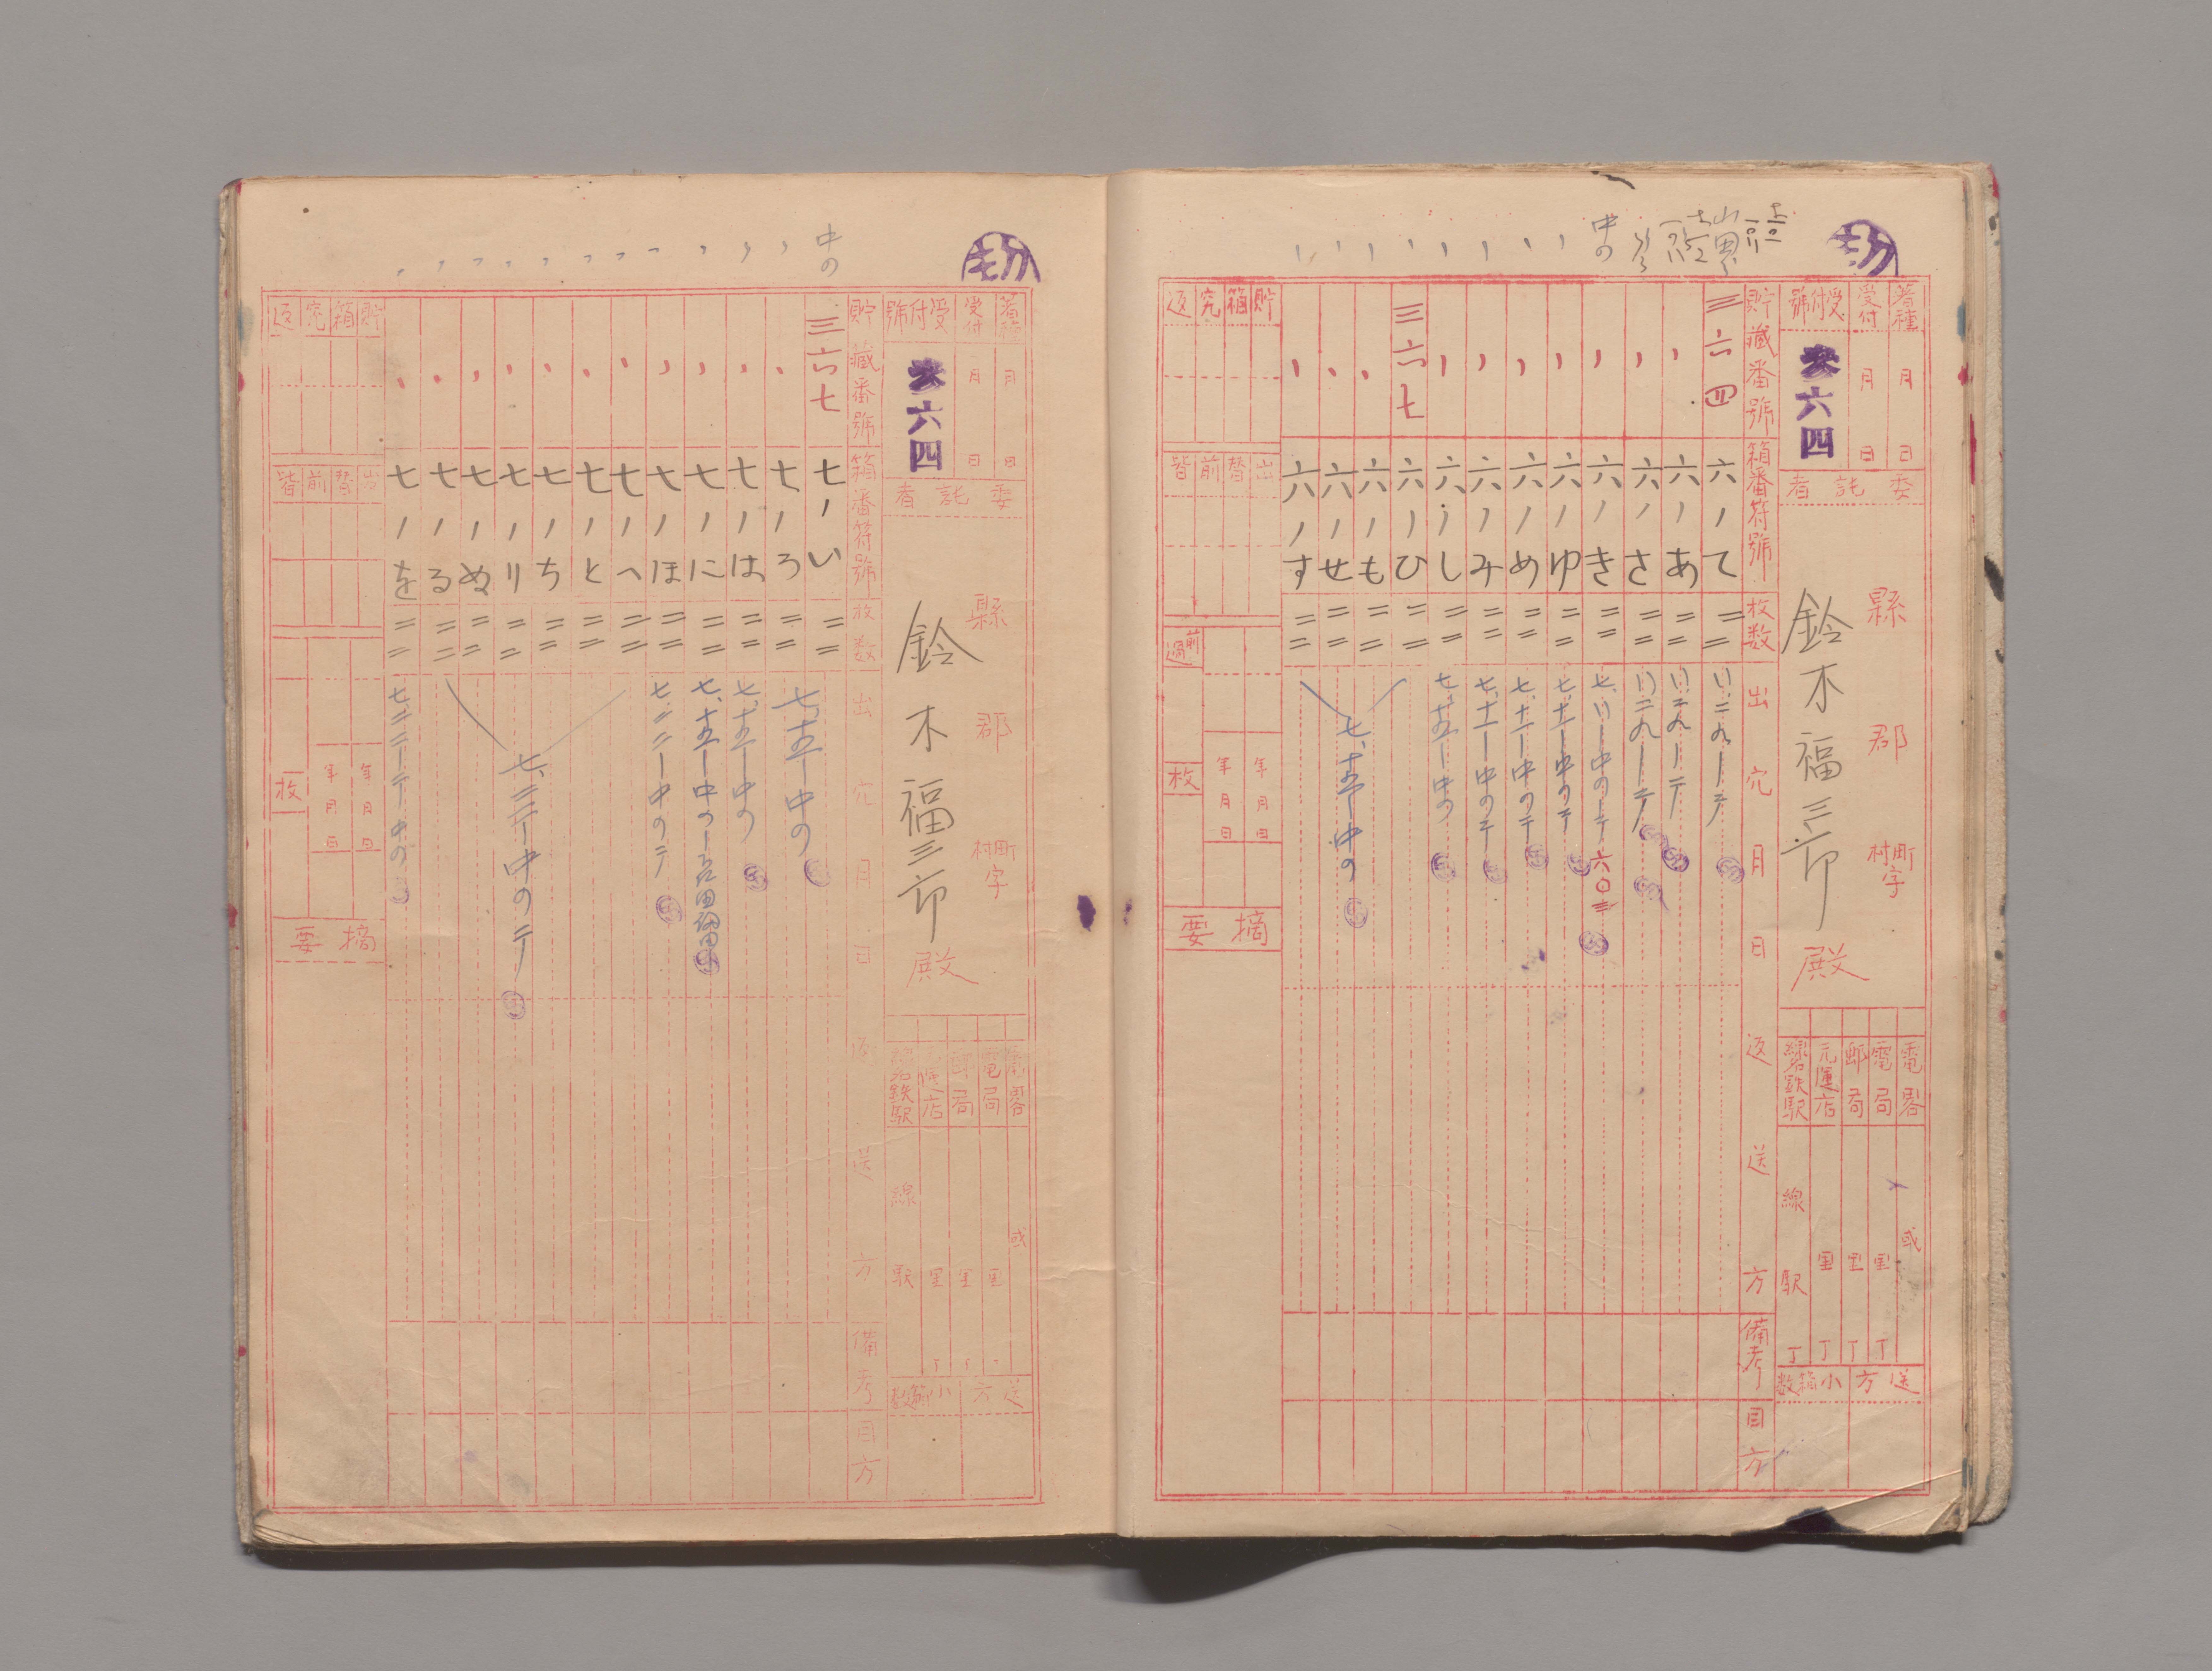 中の
着種
月
日
受付
月
日
受付號
参六四
委託者
縣
郡
町村字
鈴木福三郎
殿
電畧
電局
郵局
元運店
線名鉄駅
或
里
里
里
線
駅
丁
丁
丁
丁
送方
小箱数
貯蔵番號
箱番符號
枚数
出穴月日返送方
備考
目方
三六四
六ノて
二二
六ノあ
二二
六ノさ
二二
六ノき
二二
七、
中のニテ
六〇三
六ノゆ
二二
七、十一
中のテ
六ノめ
二二
七、十一
中のテ
六ノみ
二二
七、十一
中のテ
六ノし
二二
七、十五
中の
三六七
六ノひ
二二
六ノも
二二
六ノせ
二二
六ノす
二二
七、十五
中の
貯箱究返
出替前皆
前過
年月日
年月日
枚
摘要
中の
着種
月
日
受付
月
日
受付號
参六四
委託者
縣
郡
町村字
鈴木福三郎
殿
電畧
電局
郵局
元運店
線名鉄駅
或
里
里
里
線
駅
送方
小箱数
貯蔵番號
箱番符號
枚数
出穴月日返送方
備考
目方
三六七
七ノい
二二
七ノろ
二二
七、十五
中の
七ノは
二二
七、十五
中の
七ノに
二二
七、十五
中の
七ノほ
二二
七、二二
中のテ
七ノへ
二二
七ノと
二二
七ノち
二二
七ノり
二二
七ノぬ
二二
七ノる
二二
七、二三
中のニテ
七ノを
二二
七、二三
中の
貯箱究返
出替前皆
年月日
年月日
枚
摘要